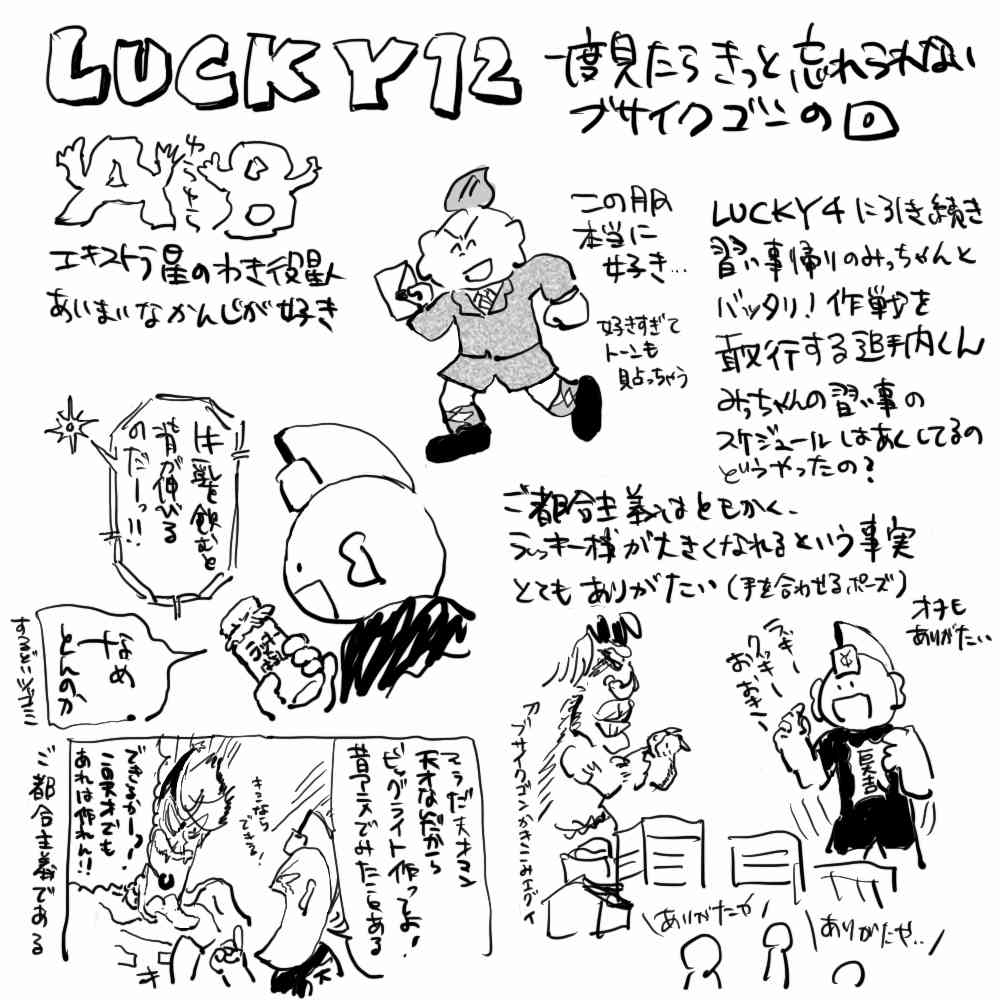 LUCKY12
一度見たらきっと忘れられない
ブサイクゴンの回
AB
ゆうとこ
エキストラ星のわき役星人
あいまいなかんじが好き
この服
本当に
好き…
好きすぎて
トーンも
貼っちゃう
LUCKY4に引き続き
習い事帰りのみっちゃんと
バッタリ!作戦を
敢行する追手内くん
みっちゃんの習い事の
スケジュールはあくしてるの
どうやったの?
牛乳を飲むと
背が伸びる
のだーっ!!
なめ
とんのか
するどいツッコミ
ご都合主義はともかく、
ラッキー様が大きくなれるという事実
とてもありがたい(手を合わせるポーズ)
オチも
ありがたい
ラッキー
クッキー
おおきー
巨大吉
ブサイクゴンかきこみエグイ
ありがたや
ありがたや…
天才なんだから
ビッグライト作ってよ!
昔アニメでみたことある
きみなら
できる!
できるかーっ!
この天才でも
あれは作れん!!
ご都合主義である